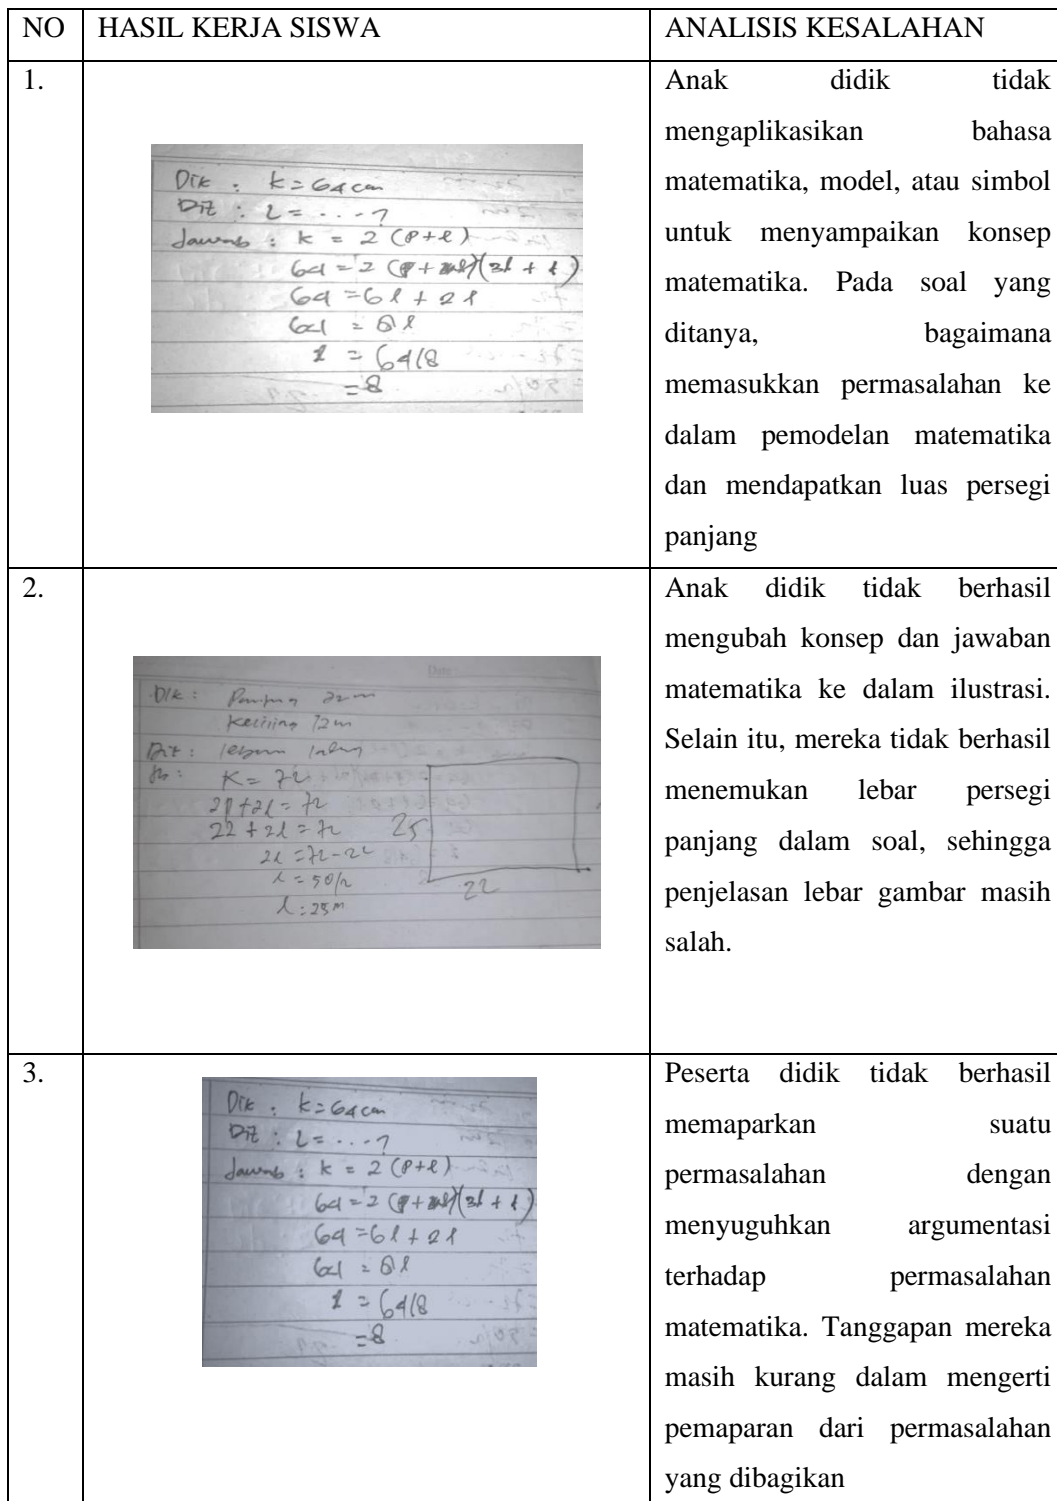 NO HASIL KERJA SISWA ANALISIS KESALAHAN
1.
Dik : k = 64 cm
Dit : L = . . . . ?
Jawab : k = 2 (p+l)
64 = 2 (3l + l)
64 = 6l + 2l
64 = 8l
l = 64/8
= 8
Anak didik tidak
mengaplikasikan bahasa
matematika, model, atau simbol
untuk menyampaikan konsep
matematika. Pada soal yang
ditanya, bagaimana
memasukkan permasalahan ke
dalam pemodelan matematika
dan mendapatkan luas persegi
panjang
2.
Date
Dik :
72 m
Dit :
K = 72
2p + 2l = 72
22 + 2l = 72
2l = 72 - 22
l = 50/2
l = 25 m
25
22
Anak didik tidak berhasil
mengubah konsep dan jawaban
matematika ke dalam ilustrasi.
Selain itu, mereka tidak berhasil
menemukan lebar persegi
panjang dalam soal, sehingga
penjelasan lebar gambar masih
salah.
3.
Dik : k = 64 cm
Dit : L = . . . . ?
Jawab : k = 2 (p+l)
64 = 2 (3l + l)
64 = 6l + 2l
64 = 8l
l = 64/8
= 8
Peserta didik tidak berhasil
memaparkan suatu
permasalahan dengan
menyuguhkan argumentasi
terhadap permasalahan
matematika. Tanggapan mereka
masih kurang dalam mengerti
pemaparan dari permasalahan
yang dibagikan